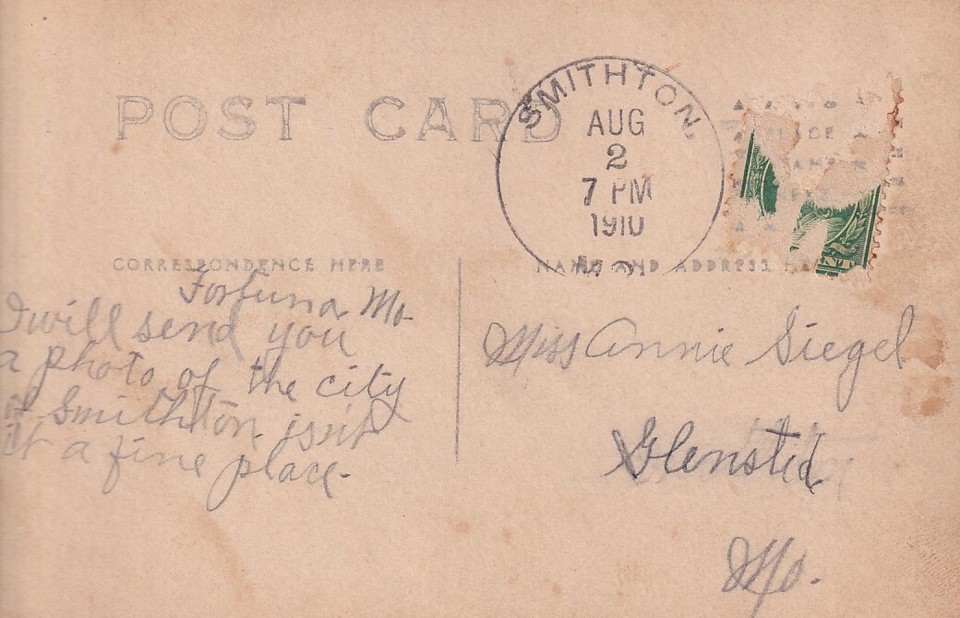 POST CARD
SMITHTON,
AUG
2
7 PM
1910
MO.
PLACE
STAMP
CORRESPONDENCE HERE
NAME AND ADDRESS HERE
Fortuna Mo-
I will send you
a photo of the city
of Smithton isn't
it a fine place-
Miss Annie Siegel
Glensted
Mo.